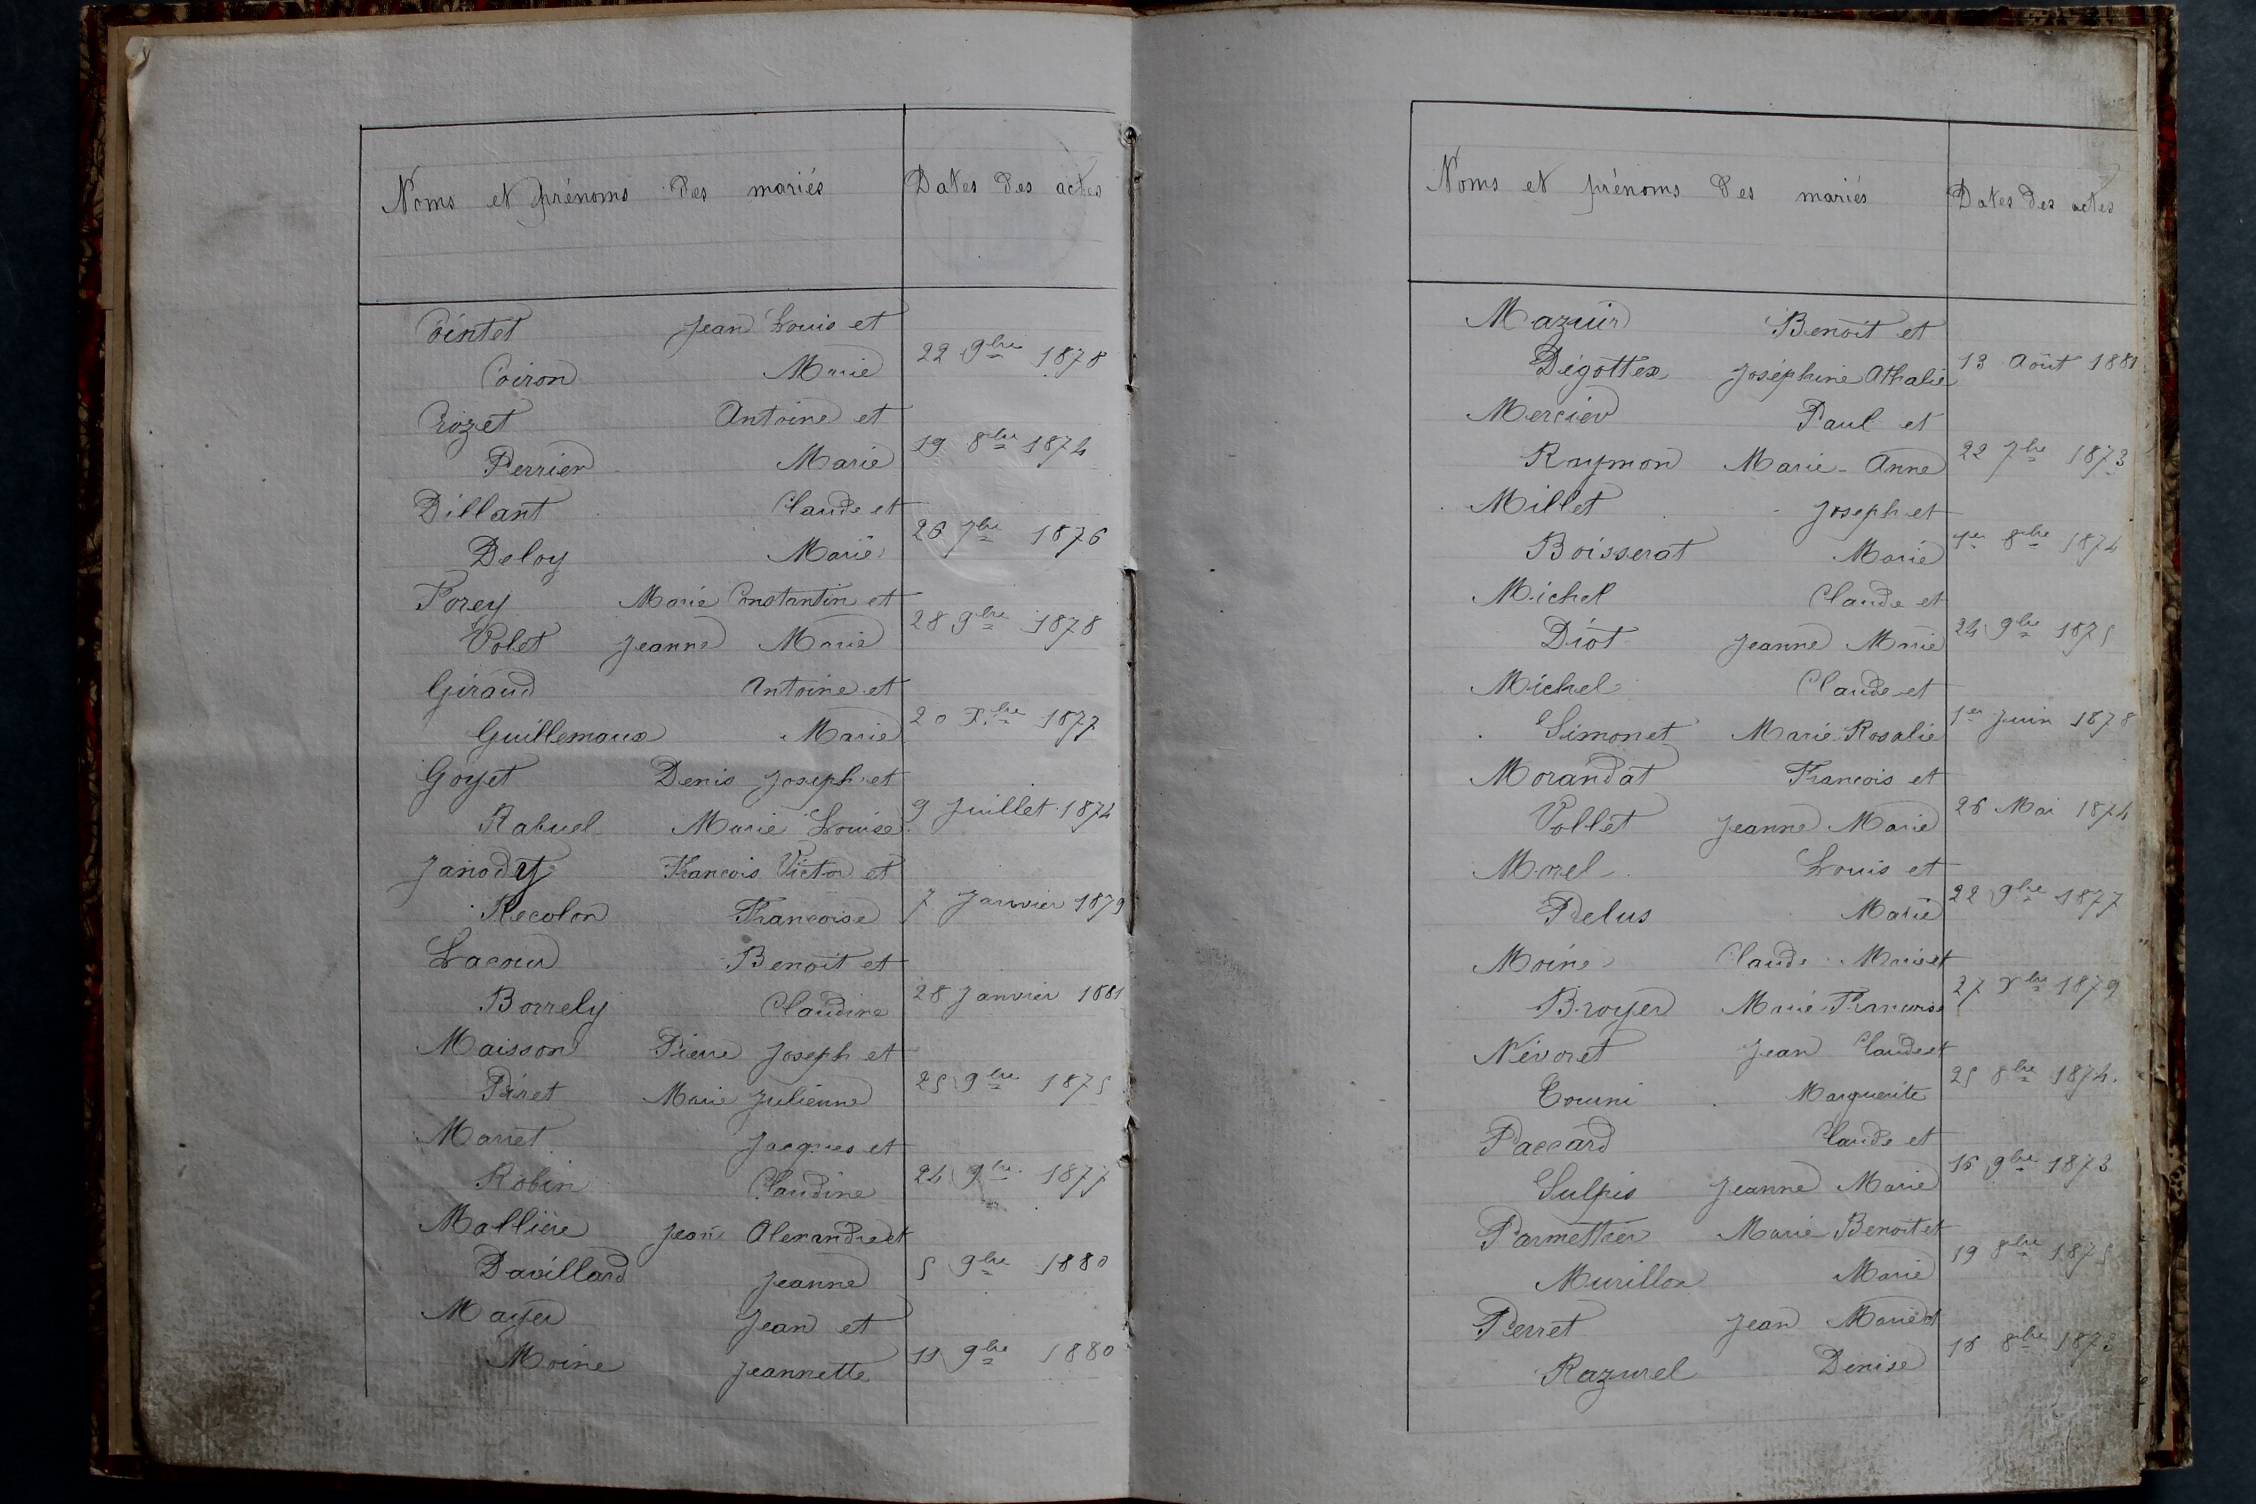 Noms et prénoms des mariés Dates des actes
Cointet Jean Louis et
Coiron Marie 22 9bre 1878
Crozet Antoine et
Perrier Marie 19 8bre 1874
Dillant Claude et
Deloy Marie 26 7bre 1876
Forey Marie Constantin et
Volet Jeanne Marie 28 9bre 1878
Giraud Antoine et
Guillemaux Marie 20 Xbre 1877
Goyet Denis Joseph et
Rabuel Marie Louise 9 Juillet 1874
Janody François Victor et
Recolon Françoise 7 Janvier 1879
Lacour Benoit et
Borrely Claudine 28 Janvier 1881
Maisson Pierre Joseph et
Piret Marie Julienne 25 9bre 1875
Marret Jacques et
Robin Claudine 24 9bre 1877
Mallière Jean Alexandre et
Davillard Jeanne 5 9bre 1880
Mayer Jean et
Moine Jeannette 11 9bre 1880
Noms et prénoms des mariés Dates des actes
Mazuir Benoit et
Dégottex Joséphine Athalie 13 Août 1881
Mercier Paul et
Raymon Marie-Anne 22 7bre 1873
Millet Joseph et
Boisserat Marie 1er 8bre 1874
Michel Claude et
Diot Jeanne Marie 24 9bre 1875
Michel Claude et
Simonet Marie Rosalie 1er Juin 1878
Morandat François et
Vollet Jeanne Marie 26 Mai 1874
Morel Louis et
Pelus Marie 22 9bre 1877
Moine Claude Marie et
Broyer Marie Françoise 27 Xbre 1879
Névoret Jean Claude et
Tourni Marguerite 25 8bre 1874.
Paccard Claude et
Sulpis Jeanne Marie 16 9bre 1873
Parmettier Marie Benoit et
Murillon Marie 19 8bre 1875
Perret Jean Marie et
Razurel Denise 16 8bre 1873